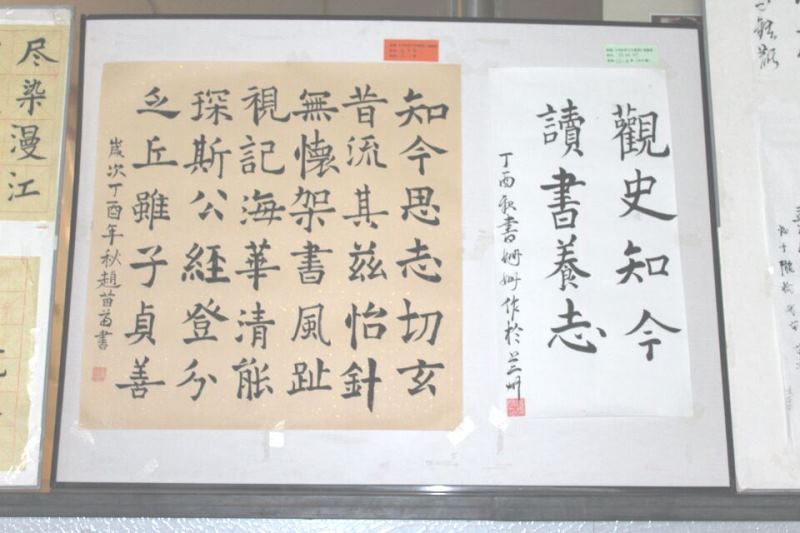 尽染漫江
知今思志切玄
昔流其茲怡針
無懷架書風趾
視記海華清能
琛斯公經登分
乏丘雖子貞善
歲次丁酉年秋趙苗苗書
觀史知今
讀書養志
丁酉秋書姍姍作於兰州